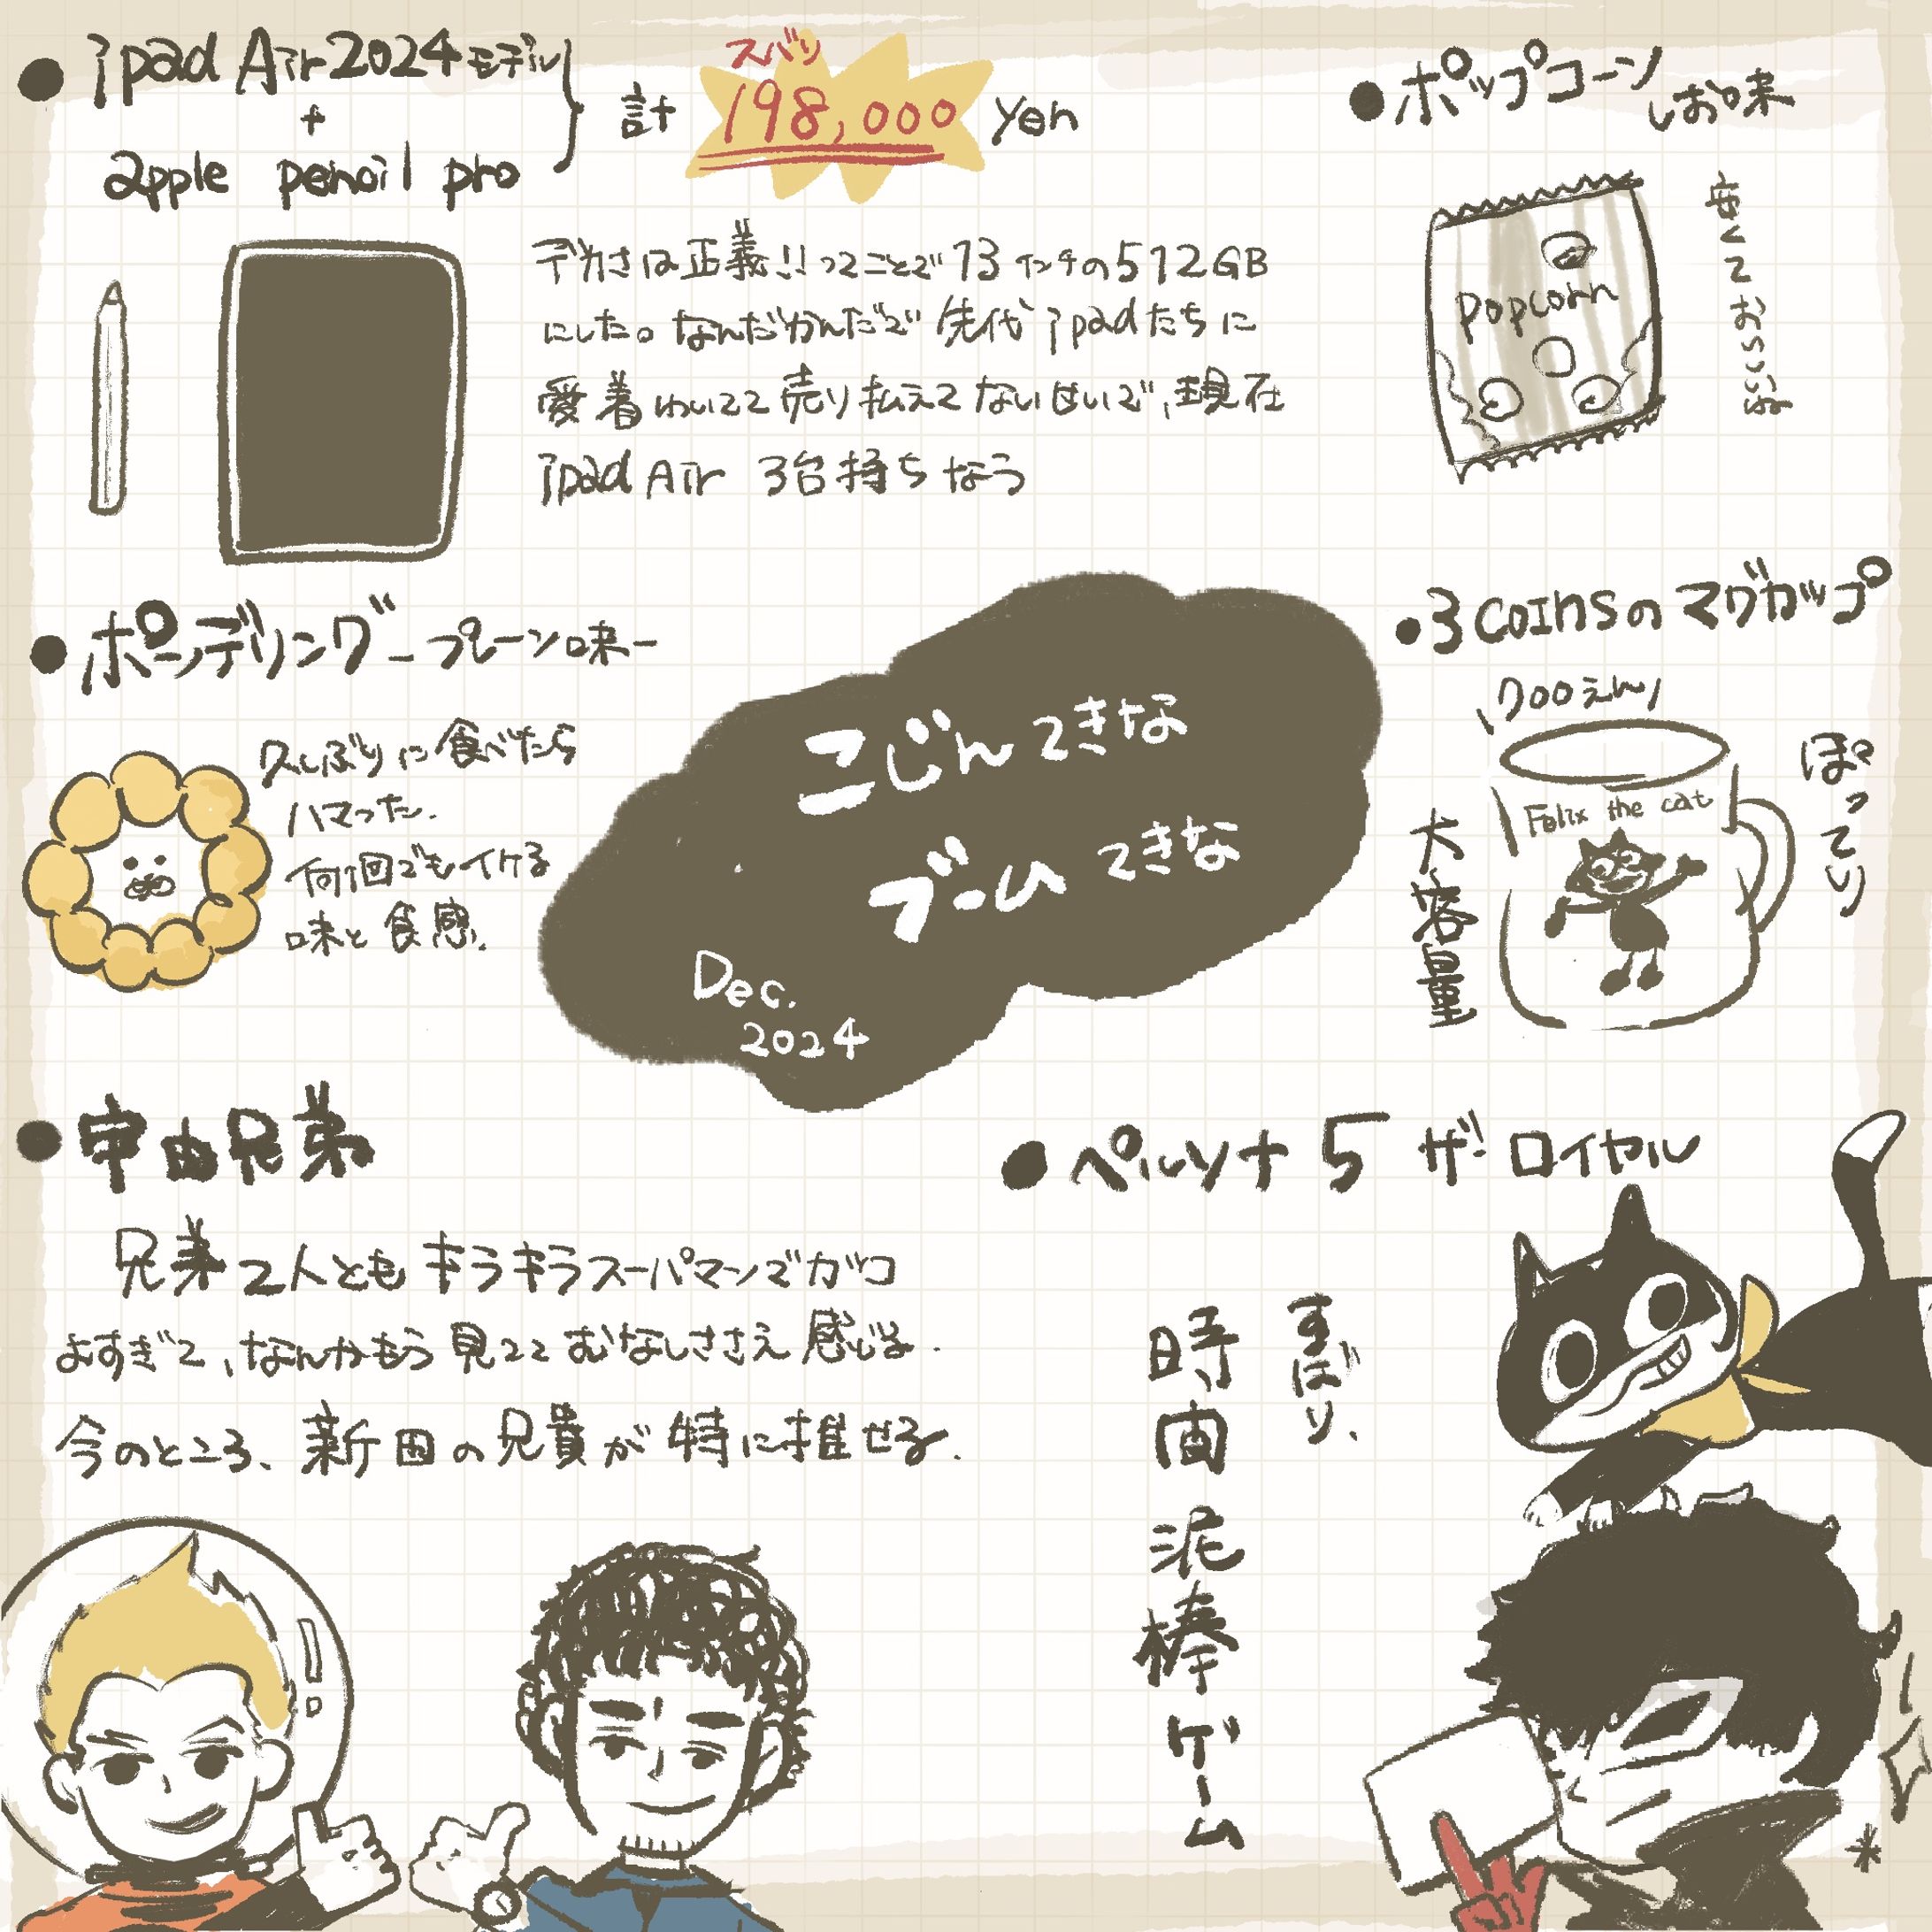 ●ipad Air2024モデル
+
apple pencil pro
計
ズバリ
198,000
yen
デカさは正義!!ってことで13インチの512GB
にした。なんだかんだで先代ipadたちに
愛着わいてて売り払えてないせいで、現在
ipad Air 3台持ちなう
●ポップコーン
しお味
popcorn
安くておいしいね
●ポンデリング-プレーン味-
久しぶりに食べたら
ハマった.
何個でもイケる
味と食感.
こじんてきな
ブームてきな
Dec.
2024
●3coinsのマグカップ
700えん
Felix the cat
ぽってり
大容量
●宇宙兄弟
兄弟2人ともキラキラスーパマンでガッコ
よすぎて、なんかもう見ててむなしささえ感じる.
今のところ、新田の兄貴が特に推せる.
●ペルソナ5 ザ・ロイヤル
ずばり、
時間泥棒ゲーム